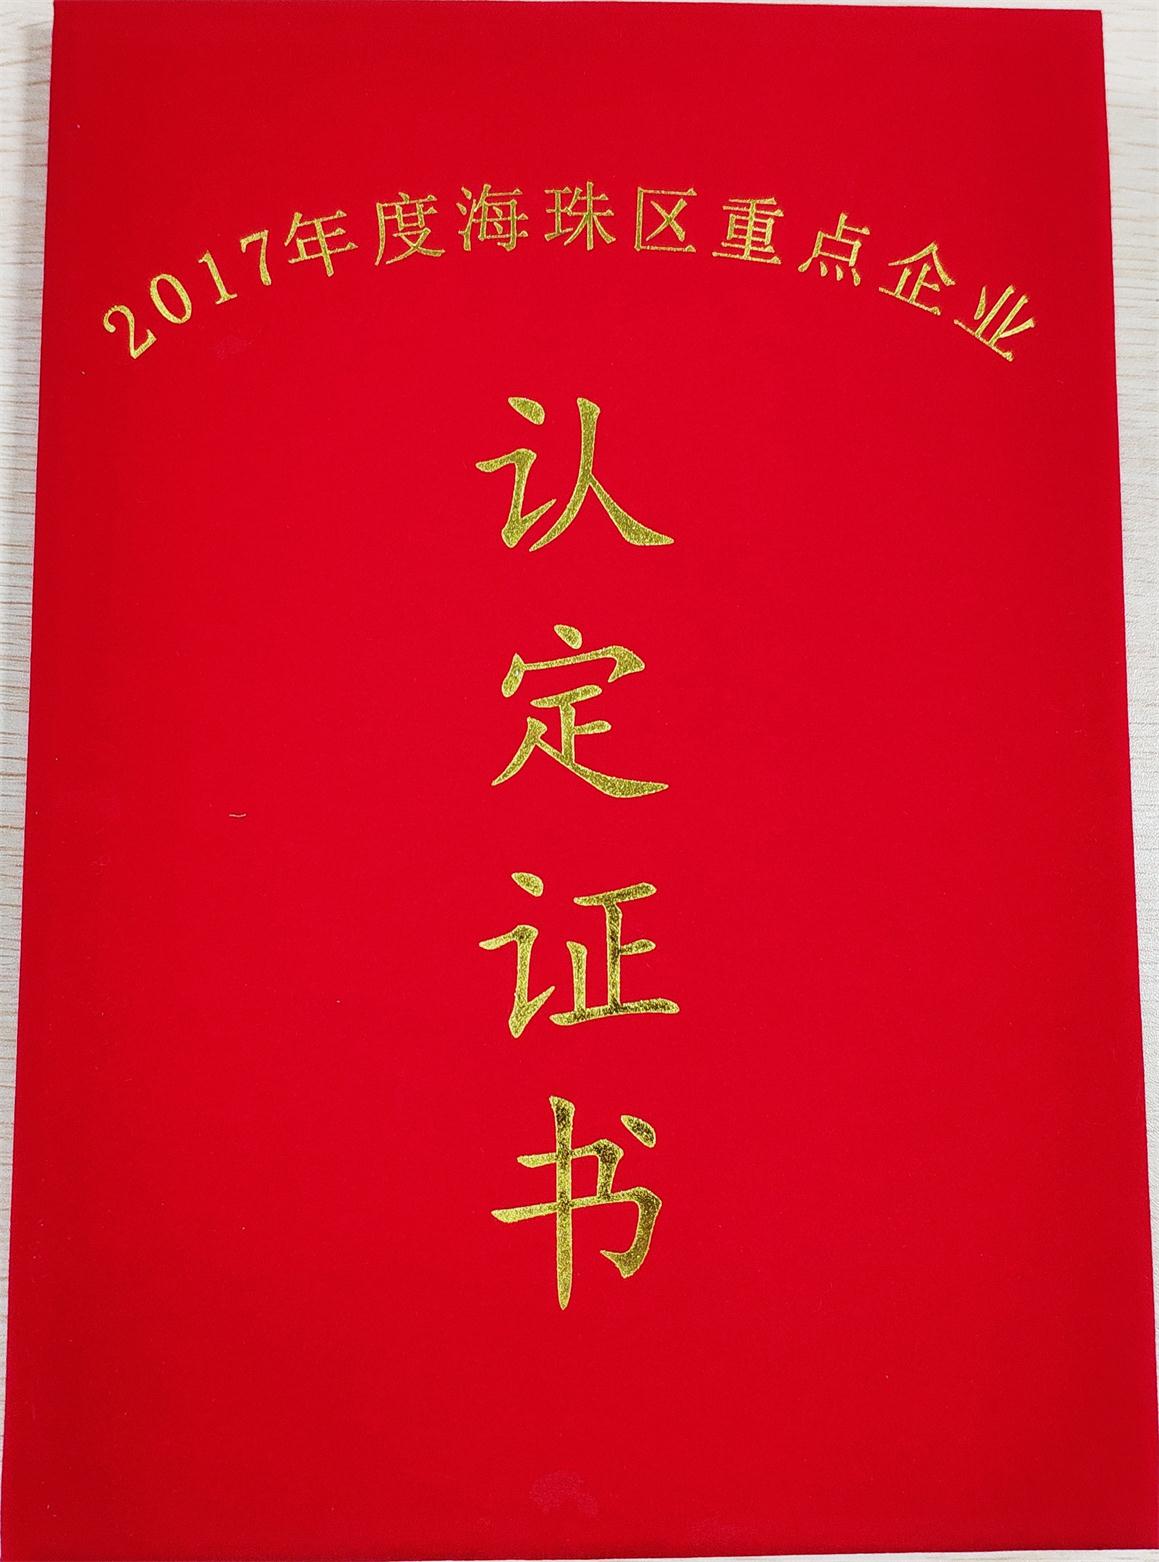 2017年度海珠区重点企业
认定证书